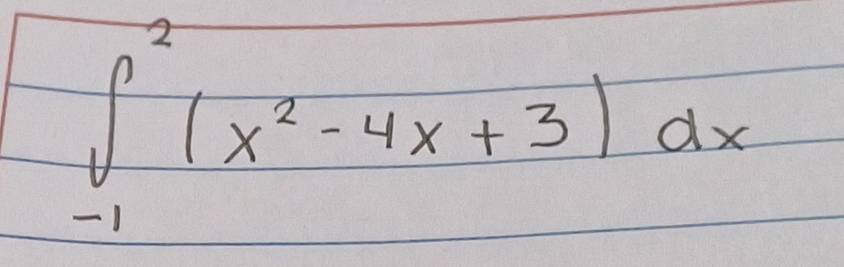 ∫₋₁² (x² - 4x + 3) dx